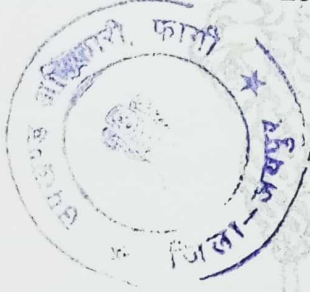 उपखण्ड अधिकारी, फागी
जिला-जयपुर